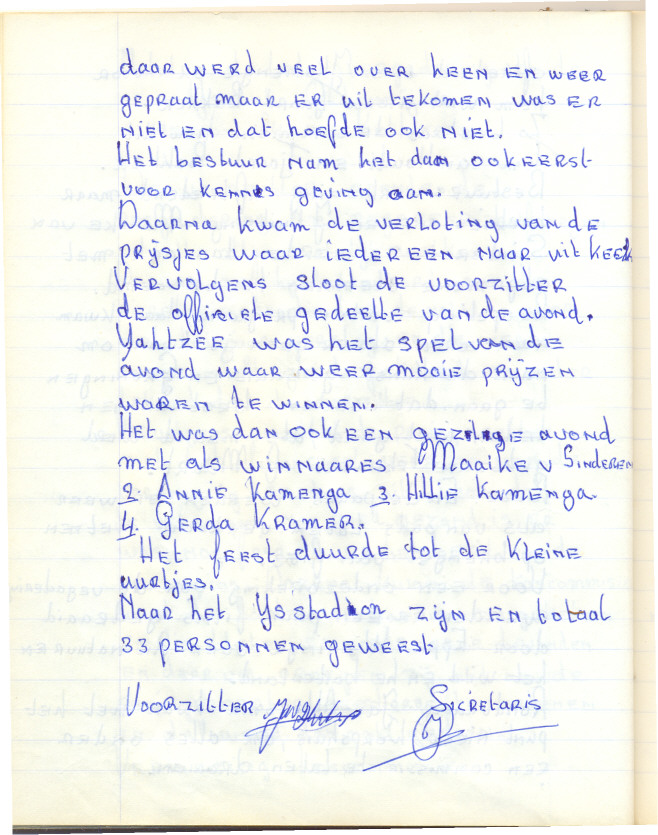 daar werd veel over heen en weer
gepraat maar er uit tekomen was er
niet en dat hoefde ook niet.
Het bestuur nam het dan ook eerst
voor kennis geving aan.
Daarna kwam de verloting van de
prijsjes waar iedereen naar uit keek
Vervolgens sloot de voorzitter
de officiele gedeelte van de avond.
Yahtzee was het spel van de
avond waar weer mooie prijzen
waren te winnen.
Het was dan ook een gezellige avond
met als winnaares Maaike v Sinderen
2. Annie Kamenga 3. Hillie Kamenga.
4. Gerda Kramer.
Het feest duurde tot de kleine
uurtjes.
Naar het ijsstadion zijn en totaal
33 personnen geweest.
Voorzitter Secretaris